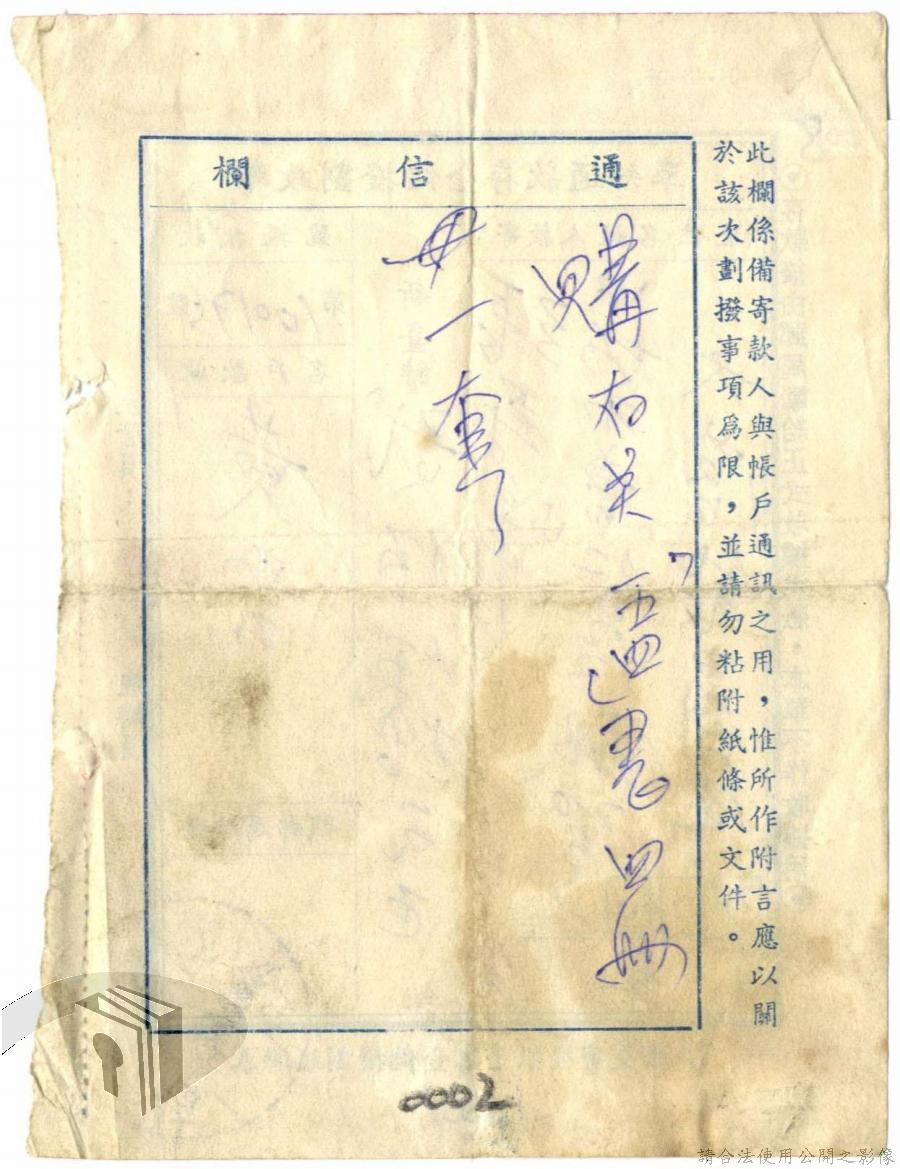 此欄係備寄款人與帳戶通訊之用，惟所作附言應以關
於該次劃撥事項爲限，並請勿粘附紙條或文件。
通信欄
購 四冊
一套
0002
請合法使用公開之影像